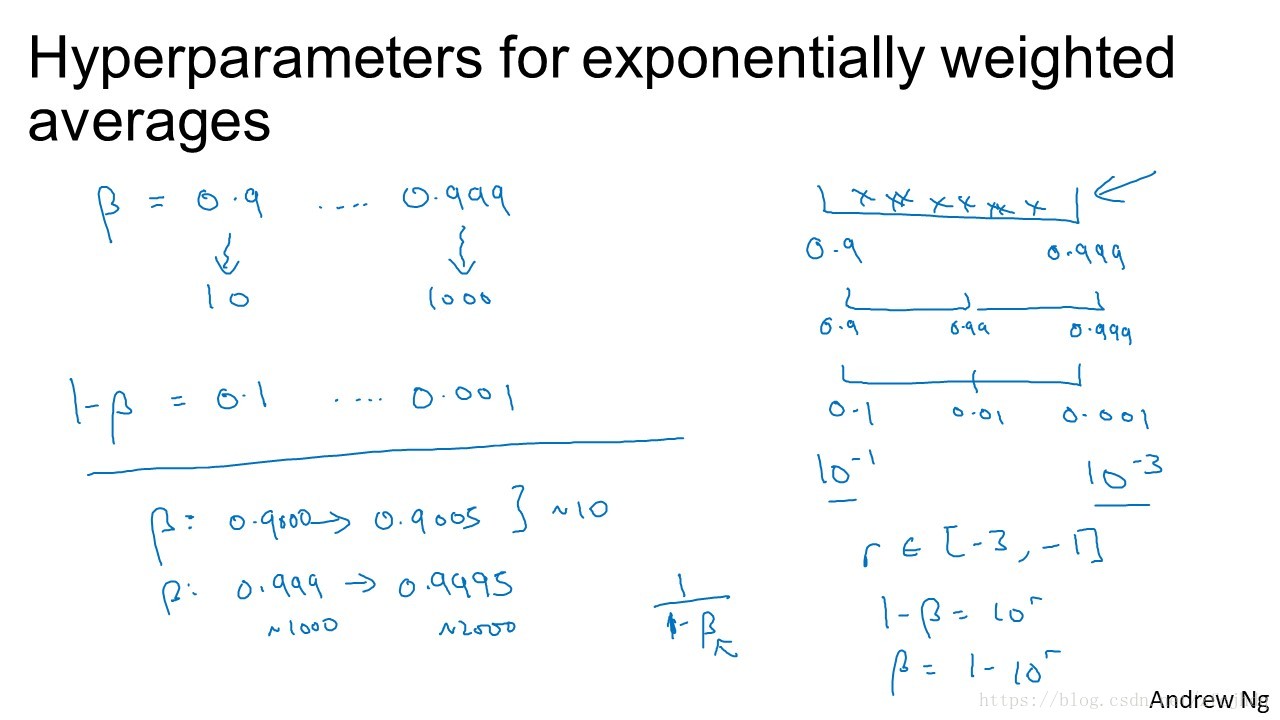 Hyperparameters for exponentially weighted
averages
β = 0.9 .... 0.999
10 1000
1-β = 0.1 .... 0.001
β: 0.9000 → 0.9005 } ~10
β: 0.999 → 0.9995
~1000 ~2000
1
1-β
0.9 0.999
0.9 0.99 0.999
0.1 0.01 0.001
10⁻¹ 10⁻³
r ∈ [-3, -1]
1-β = 10ʳ
β = 1-10ʳ
https://blog.csdn
Andrew Ng